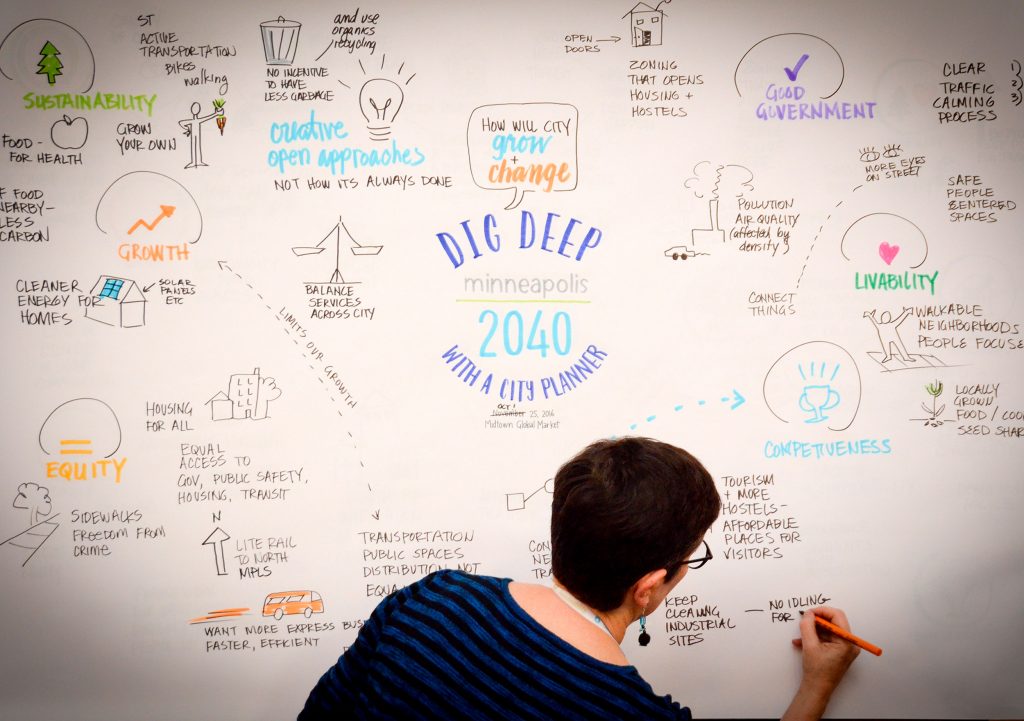 ST
ACTIVE
TRANSPORTATION
BIKES
walking
SUSTAINABILITY
FOOD -
FOR HEALTH
GROW
YOUR OWN
OF FOOD
NEARBY-
LESS
CARBON
GROWTH
CLEANER
ENERGY FOR
HOMES
SOLAR
PANELS
ETC
and use
organics
recycling
NO INCENTIVE
TO HAVE
LESS GARBAGE
creative
open approaches
NOT HOW ITS ALWAYS DONE
BALANCE
SERVICES
ACROSS CITY
LIMITS OUR GROWTH
HOW WILL CITY
grow
+
change
DIG DEEP
minneapolis
2040
WITH A CITY PLANNER
OCT!
November 25, 2016
Midtown Global Market
OPEN
DOORS
ZONING
THAT OPENS
HOUSING +
HOSTELS
GOOD
GOVERNMENT
CLEAR 1)
TRAFFIC 2)
CALMING 3)
PROCESS
MORE EYES
ON STREET
SAFE
PEOPLE
CENTERED
SPACES
POLLUTION
AIR QUALITY
(affected by
density)
CONNECT
THINGS
LIVABILITY
WALKABLE
NEIGHBORHOODS
PEOPLE FOCUSE
LOCALLY
GROWN
FOOD / COO
SEED SHAR
COMPETIVENESS
HOUSING
FOR ALL
EQUITY
EQUAL
ACCESS TO
GOV, PUBLIC SAFETY,
HOUSING, TRANSIT
SIDEWALKS
FREEDOM FROM
CRIME
N
LITE RAIL
TO NORTH
MPLS
WANT MORE EXPRESS BUS
FASTER, EFFICIENT
TRANSPORTATION
PUBLIC SPACES
DISTRIBUTION NOT
EQUA
CON
NE
TRA
TOURISM
+ MORE
HOSTELS -
AFFORDABLE
PLACES FOR
VISITORS
KEEP
CLEANING
INDUSTRIAL
SITES
— NO IDLING
FOR